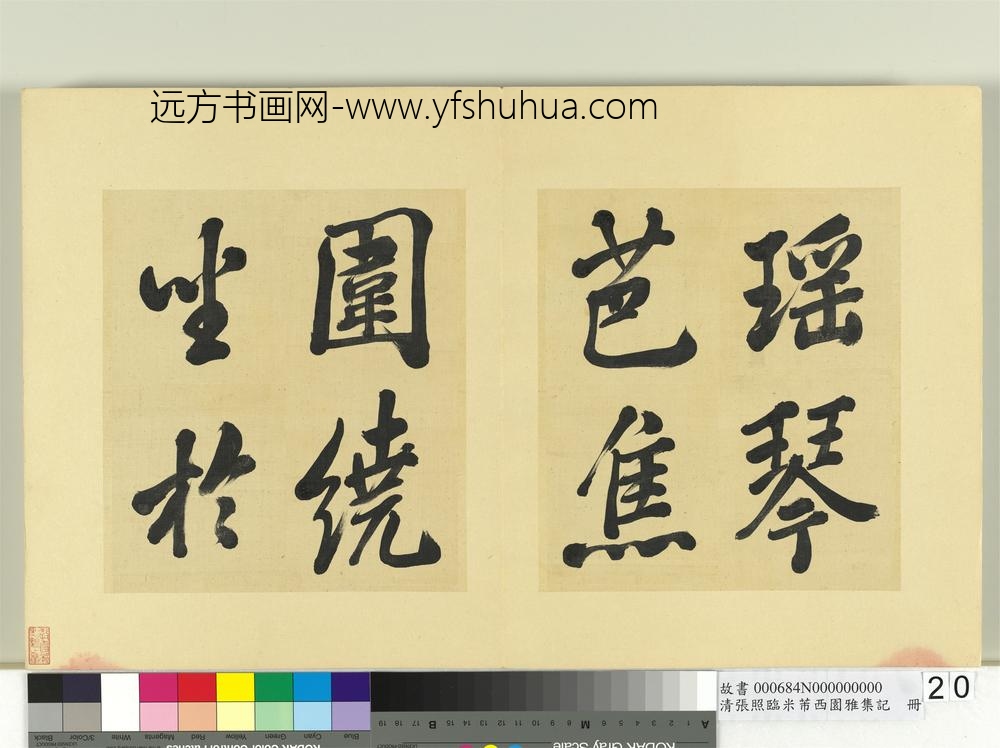 远方书画网-www.yfshuhua.com
瑶琴
芭焦
圍繞
坐於
故書 000684N000000000
清張照臨米芾西園雅集記 冊
20
Black
3/Color
White
Magenta
Red
Yellow
Green
Cyan
Blue
A 1 2 3 4 5 6 M 8 9 10 11 12 13 14 15 B 17 18 19
KODAK Gray Scale